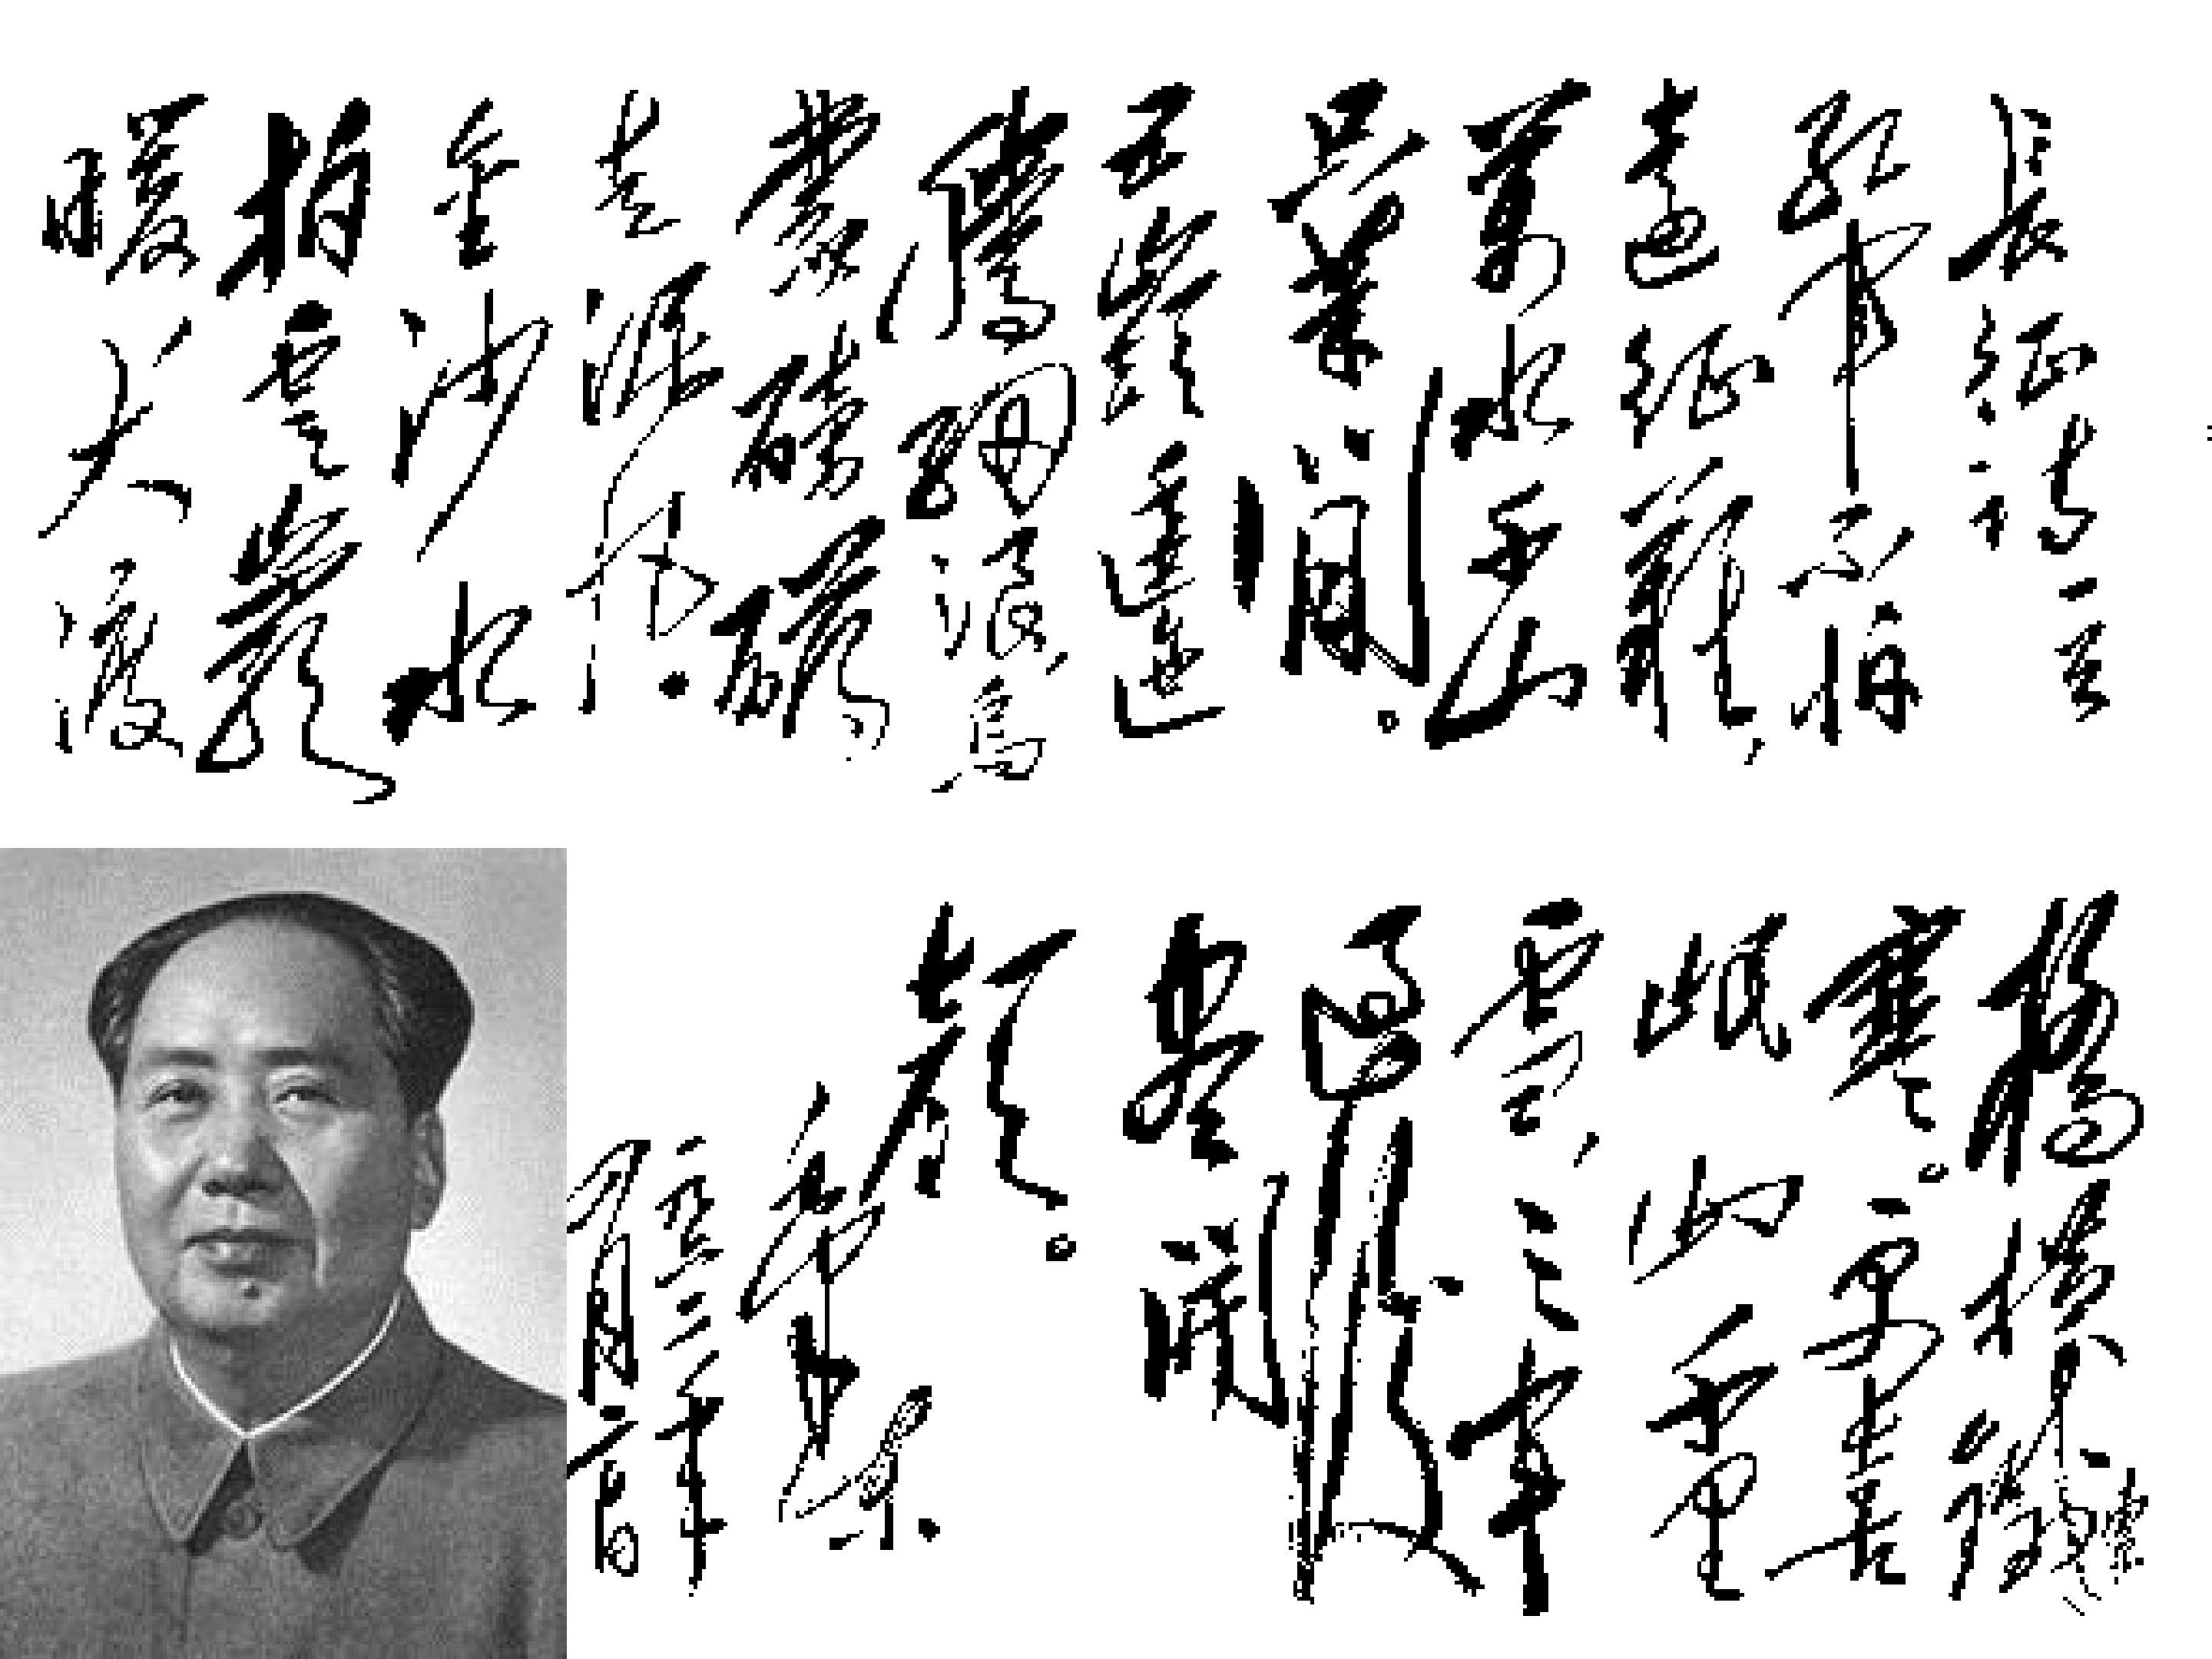 長征詩一首
紅軍不怕
遠征難，
萬水千山
只等閒。
五嶺逶迤
騰細浪，烏
蒙磅礴
走泥丸。
金沙水
拍雲崖
暖大渡
橋橫鐵索
寒。更喜
岷山千里
雪，三軍
過後
盡開
顏。
毛澤東